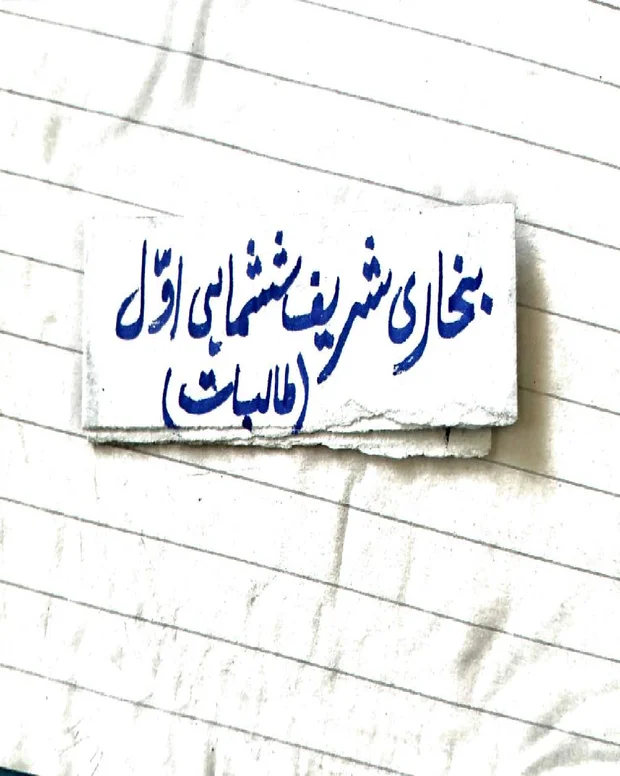 بخاری شریف ششماہی اوّل
(طالبات)